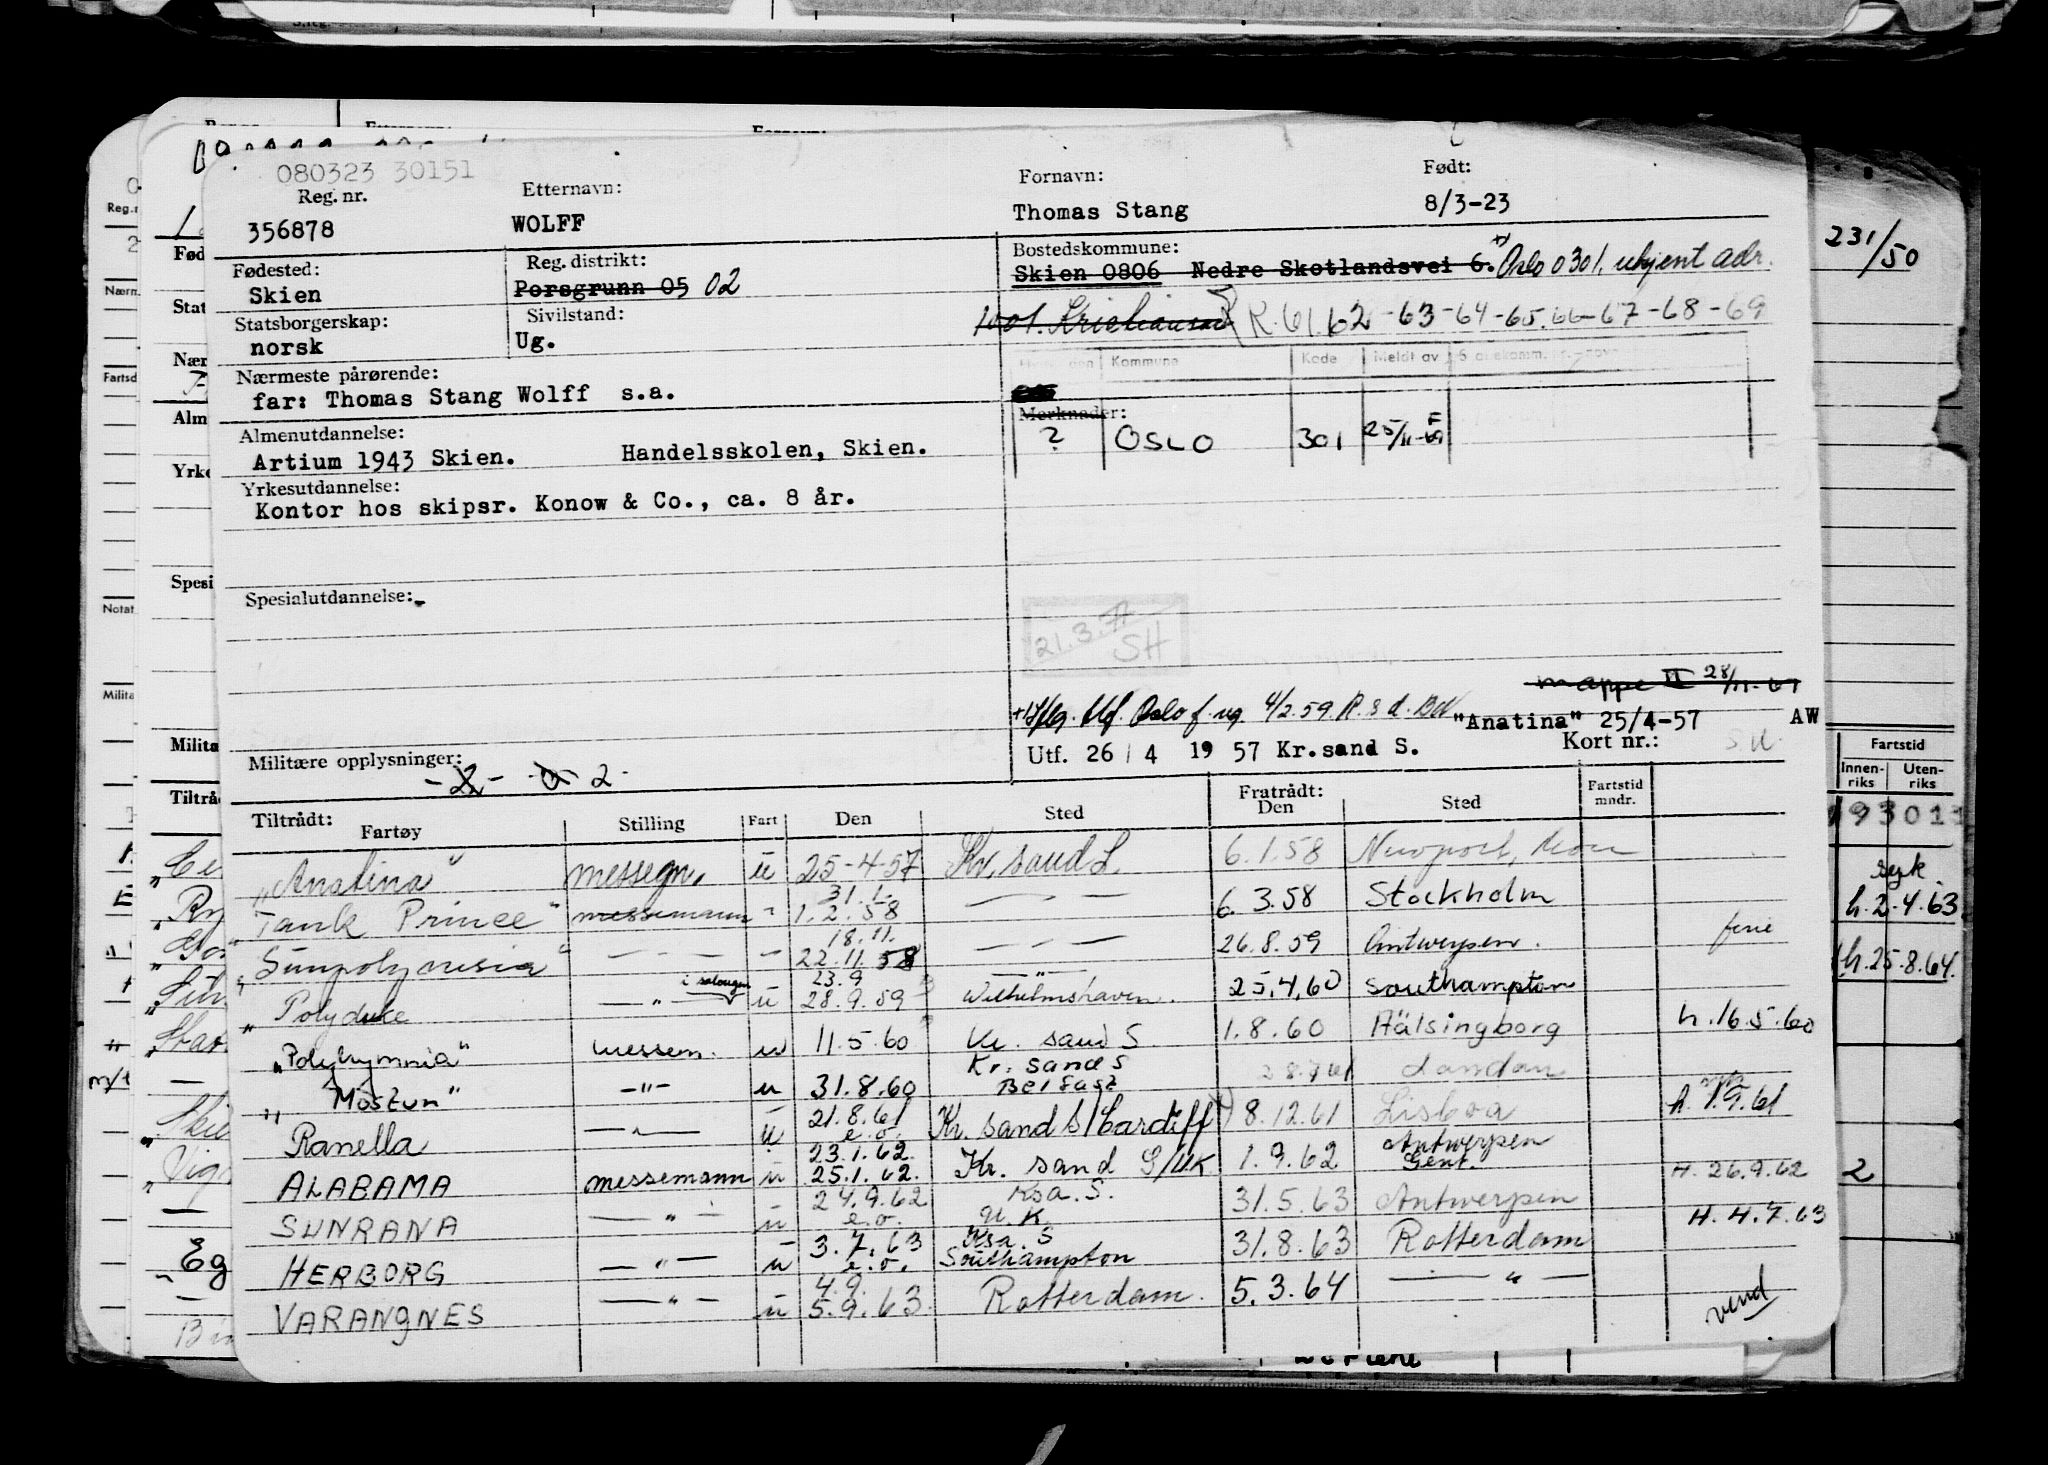 080323 30151
Reg. nr.
356878
Etternavn:
WOLFF
Fornavn:
Thomas Stang
Født:
8/3-23
Fødested:
Skien
Reg. distrikt:
Porsgrunn 05 02
Bostedskommune:
Skien 0806 Nedre Skotlandsvei 6. Oslo 0301, ukjent adr.
231/50
Statsborgerskap:
norsk
Sivilstand:
Ug.
1001. R. 61 62 -63-64-65.66-67-68-69
Kommune Kode Meldt av
Nærmeste pårørende:
far: Thomas Stang Wolff s.a.
Merknader:
? OSLO 301 25/11-69
Almenutdannelse:
Artium 1943 Skien. Handelsskolen, Skien.
Yrkesutdannelse:
Kontor hos skipsr. Konow & Co., ca. 8 år.
Spesialutdannelse:-
21.3.77
SH
mappe II 28/11-69
Oslo f. ug 4/2.59 R.s.d.
"Anatina" 25/4-57 AW
Militære opplysninger:
2
Utf. 26/4 1957 Kr.sand S. Kort nr.:
Tiltrådt: Fartøy Stilling Fart Den Sted Fratrådt: Den Sted Fartstid mndr.
"Anatina" messegn. u 25-4-57 Kr. sand S. 6.1.58 Newport, Mon
31.1.
"Tank Prince" messemann - " 1.2.58 — " — 6.3.58 Stockholm
18.11.
"Sunpolynesia" — " — 22.11.58 — " — 26.8.59 Antwerpen. ferie
i salongen 23.9 — " —
"Polyduke — " — u 28.9.59 Wilhelmshaven. 25.4.60 Southampton
"Polyhymnia" messem. u 11.5.60 Kr. sand S. 1.8.60 Hälsingborg h.16.5.60
Kr. sand S
"Mostun" — " — u 31.8.60 Belfast London
21.8.61
Ranella — " — u e.o. Kr. sand S/Cardiff 8.12.61 Lisboa h. 1.9.61
23.1.62. Antwerpen
ALABAMA messemann u 25.1.62. Kr. sand S/UK 1.9.62 Gent. H. 26.9.62
24.9.62 Ksa. S.
SUNRANA — " — u e.o. U.K. 31.5.63 Antwerpen H. 4.7.63
3.7.63 Ksa. S
HERBORG — " — u e.o. Southampton 31.8.63 Rotterdam
4.9.
VARANGNES — " — u 5.9.63. Rotterdam. 5.3.64 — " —
vend
Fartstid
Innen-riks Uten-riks
93011
syk.
h.2.4.63
h.25.8.64.
2
Reg.n
Fød
Stat
Nær
Fartsd
Alm
Yrke
Spesi
Notat
Milita
Milita
Tiltråd
m/t
Eg